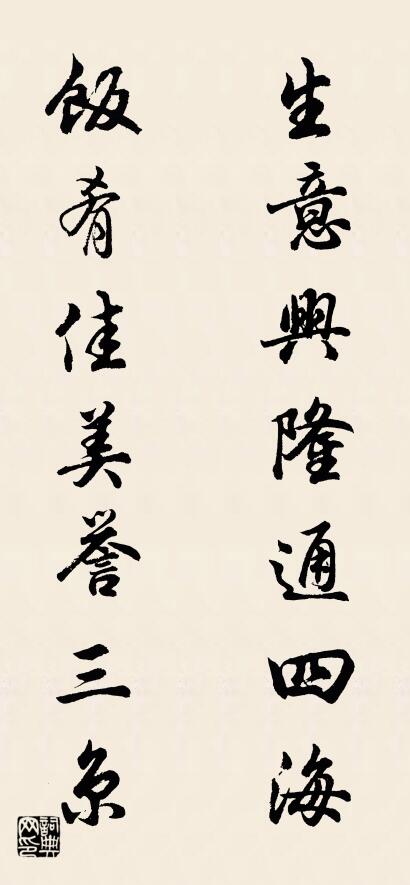 生意興隆通四海
飯肴佳美譽三京
詞典網印